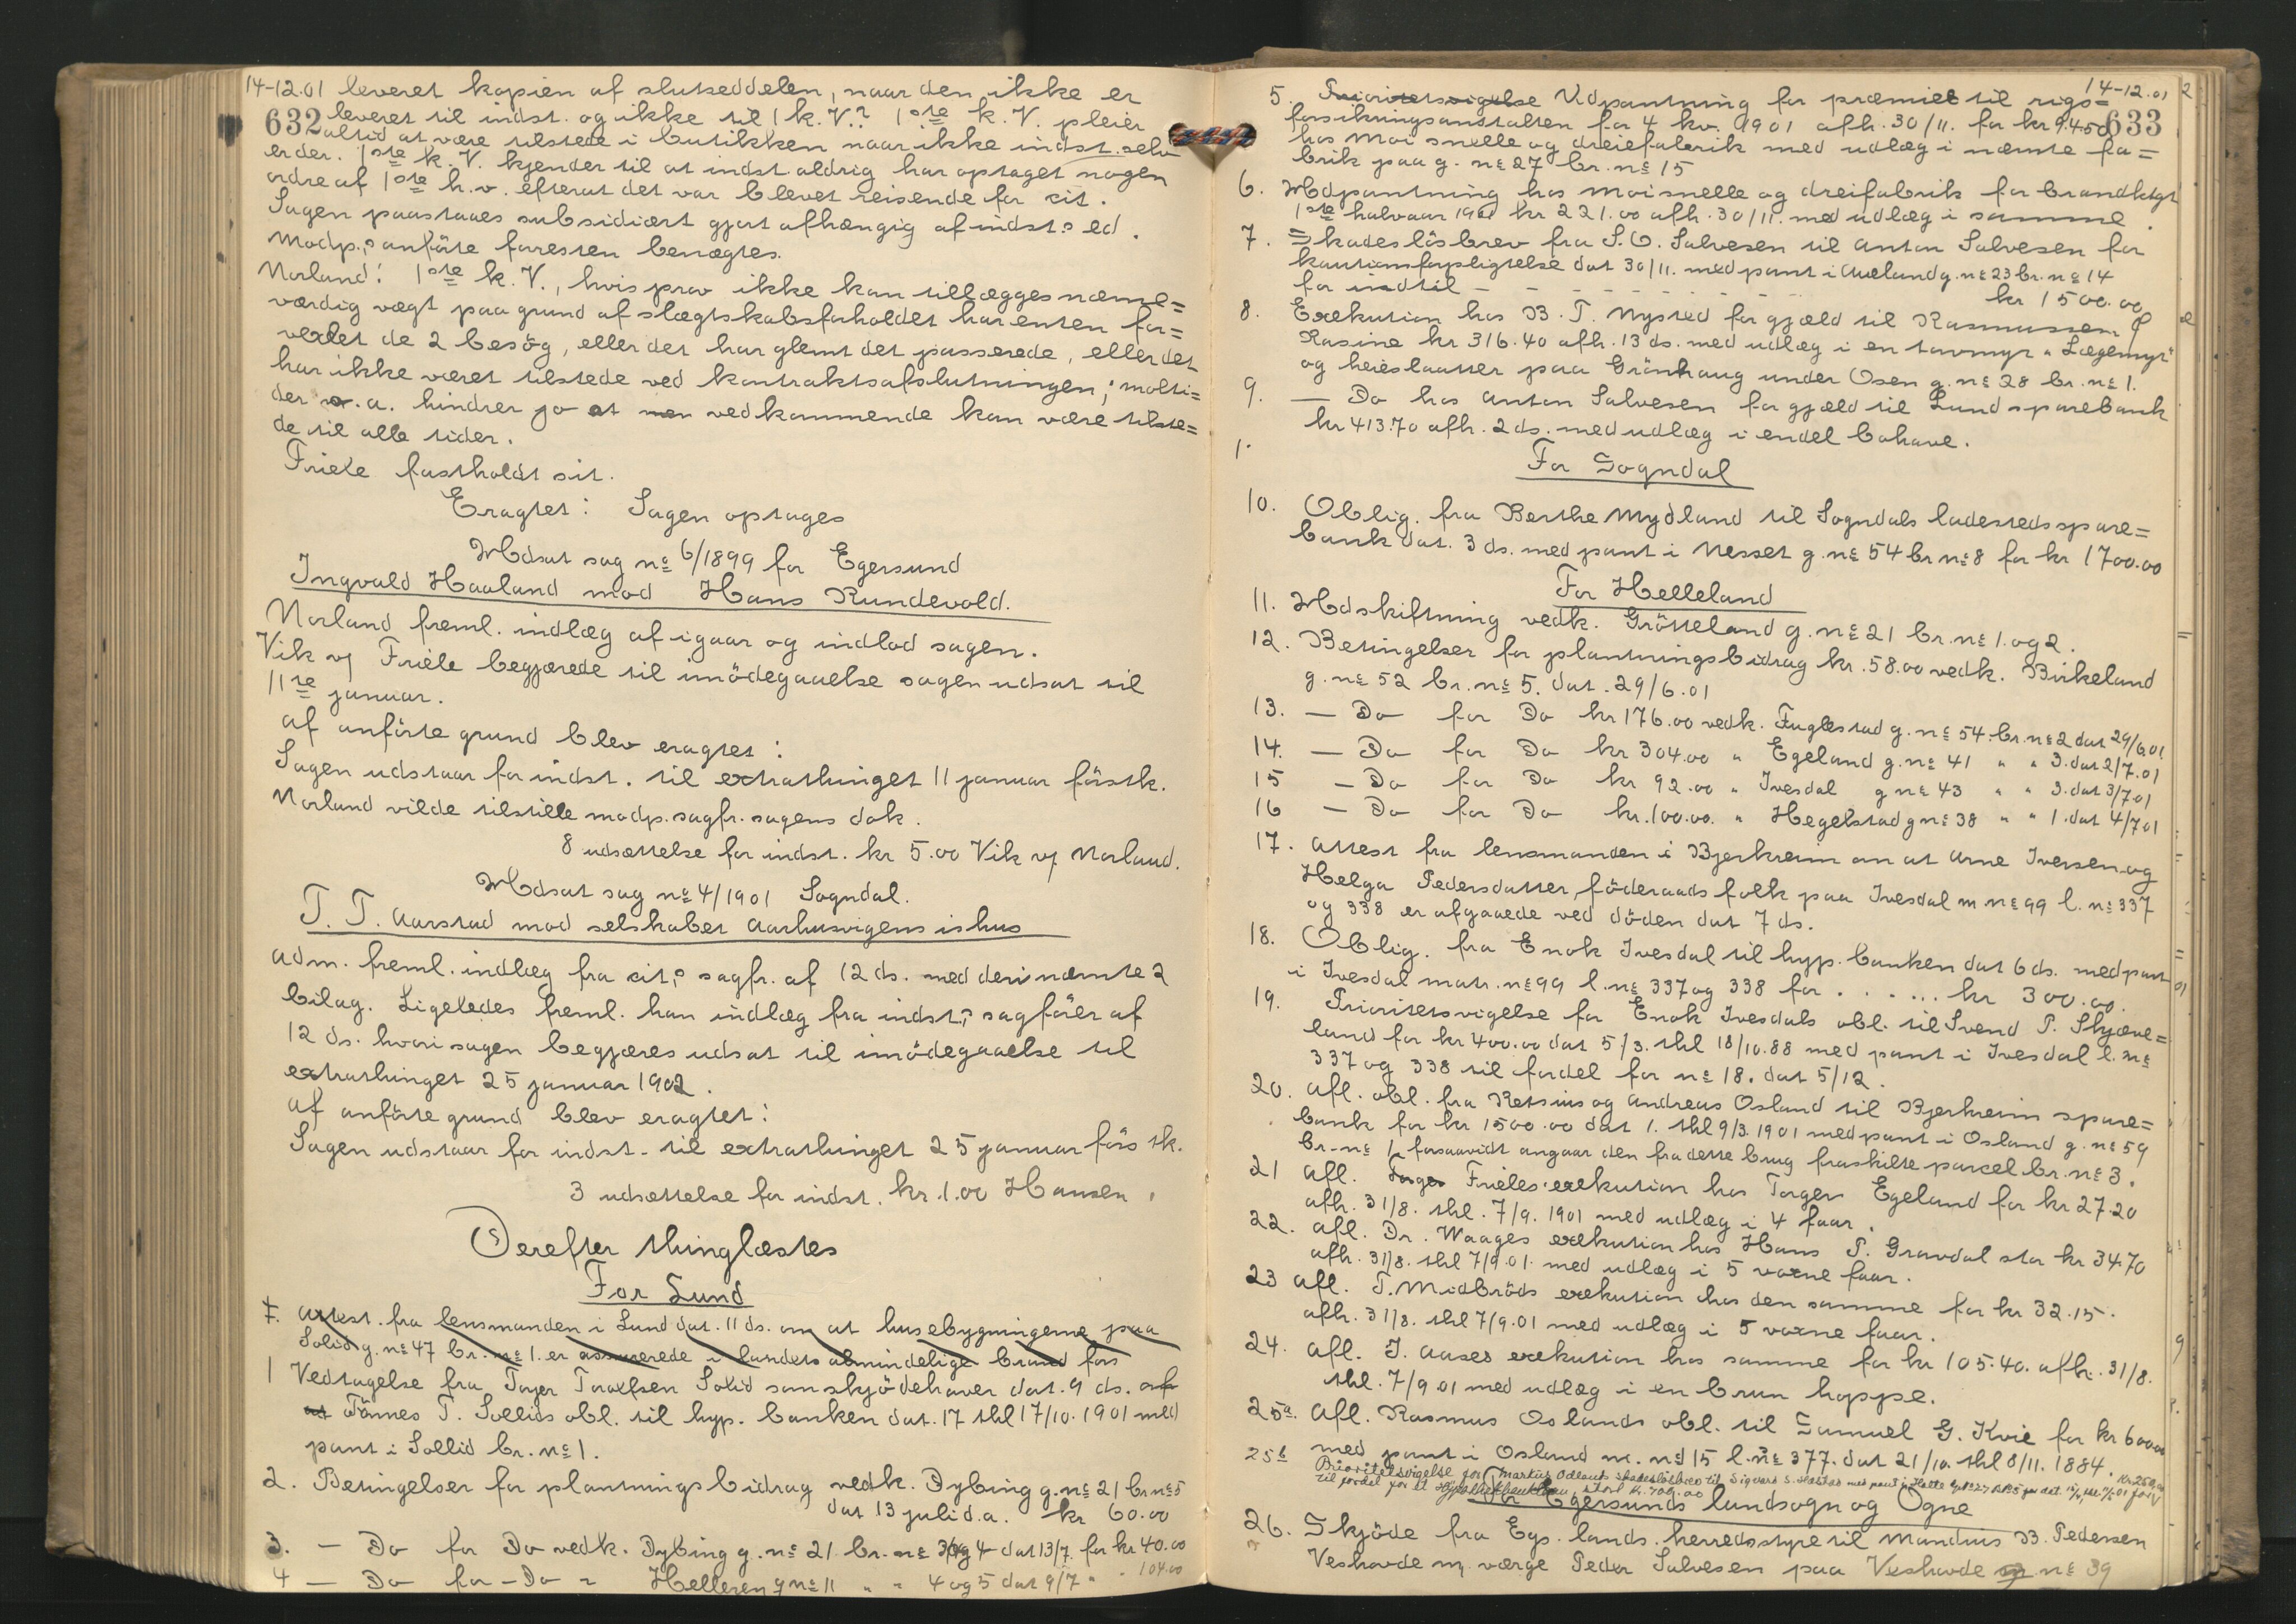 14-12.01 leveret kopien af slutseddelen, naar den ikke er
632 leveret til indst. og ikke til 1 k. V.? 1ste k. V. pleier
altid at være tilstede i butikken naar ikke indst. selv
er der. 1ste k. V. kjender til at indst. aldrig har optaget nogen
ordre af 1ste h. v. efterat det var blevet reisende for cit.
Sagen paastaaes subsidiært gjort afhængig af indst:s ed.
Modp.:s anförte foresten benægtes.
Norland: 1ste k. V., hvis prov ikke kan tillægges nævne=
værdig vægt paa grund af slægtskabsforholdet har enten for=
vexlet de 2 besög, eller det har glemt det passerede, eller det
har ikke været tilstede ved kontraktsafslutningen; molti=
der o. a. hindrer jo at men vedkommende kan være tilste=
de til alle tider.
Friele fastholdt sit.
Eragtet: Sagen optages
Udsat sag no 6/1899 for Egersund
Ingvald Haaland mod Hans Rundevold.
Norland freml. indlæg af igaar og indlod sagen.
Vik v/ Friele begjærede til imödegaaelse sagen udsat til
11te januar.
af anförte grund blev eragtet:
Sagen udstaar for indst. til extrathinget 11 januar förstk.
Norland vilde tilstille modp. sagfr. sagens dok.
8 udsættelse for indst. kr 5.00 Vik v/ Norland.
Udsat sag no 4/1901 Sogndal.
T. T. Aarstad mod selskabet Aarhusvigens ishus
Adm. freml. indlæg fra cit:s sagfr. af 12 ds. med deri nævnte 2
bilag. Ligeledes freml. han indlæg fra indst:s sagförer af
12 ds. hvori sagen begjæres udsat til imödegaaelse til
extrathinget 25 januar 1902.
Af anförte grund blev eragtet:
Sagen udstaar for indst. til extrathinget 25 januar förstk.
3 udsættelse for indst. kr. 1.00 Hansen.
Derefter thinglæstes
For Lund
1. Attest. fra lensmanden i Lund dat. 11 ds. om at husebygningerne paa
Solid g. no 47 br. no 1. er assurerede i landets almindelige brand fors
1 Vedtagelse fra Torger Toralfsen Solid som skjödehaver dat. 9 ds. af
at Tönnes T. Sollids obl. til hyp. banken dat. 17 thl 17/10. 1901 med
pant i Sollid br. no 1.
2. Betingelser for plantningsbidrag vedk. Dybing g. no 21 br no 5
dat 13 juli d.a. kr 60.00
3. — Do for Do vedk. Dybing g. no 21 br. no 3 og 4 dat 13/7 for kr 40.00
4 — Do for - Do " Helleren g no 11 " " 4 og 5 dat 9/7 " " 104.00
14-12.01
5. Prioritetsvigelse Udpantning for præmiet til rigs=
633
forsikringsanstalten for 4 kv. 1901 afh. 30/11. for kr 9.45
hos Moi snelle og dreiefabrik med udlæg i nævnte fa=
brik paa g. no 27 br. no 15
6. Udpantning hos Moi snelle og dreifabrik for brandktgt
1ste halvaar 1901 kr 221.00 afh. 30/11. med udlæg i samme.
7. Skadeslösbrev fra S. O. Salvesen til Anton Salvesen for
kautionsforpligtelse dat 30/11. med pant i Aueland g. no 23 br. no 14
for indtil - - - - - - kr 1500.00
8. Exekution hos B. T. Nysted for gjæld til Rasmussen &
Rasine kr 316.40 afh. 13 ds. med udlæg i en torvmyr "Lægemyr"
og heieslaatter paa Grönhaug under Osen g. no 28 br. no 1.
9. — Do hos Anton Salvesen for gjæld til Lund sparebank
kr 413.70 afh. 2 ds. med udlæg i endel bohave.
1.
For Sogndal
10. Oblig. fra Berthe Mydland til Sogndals ladestedsspare=
bank dat. 3 ds. med pant i Nesset g. no 54 br no 8 for kr 1700.00
For Helleland
11. Udskiftning vedk. Grötteland g. no 21 br. no 1. og 2.
12. Betingelser for plantningsbidrag kr. 58.00 vedk. Birkeland
g. no 52 br. no 5. dat. 29/6.01
13. — Do for Do kr 176.00 vedk. Fuglestad g. no 54. br. no 2 dat 29/6 01
14. — Do for Do kr 304.00 " Egeland g. no 41 " " 3. dat 2/7.01
15 — Do for Do kr 92.00 " Ivesdal g no 43 " " 3. dat 3/7 01
16 — Do for Do kr. 100.00. " Hegelstad g no 38 " " 1. dat 4/7 01
17. Attest fra lensmanden i Bjerkreim om at Arne Iversen og
Helga Pedersdatter, föderaadsfolk paa Ivesdal m no 99 l. no 337
og 338 er afgaaede ved döden dat 7 ds.
18. Oblig. fra Enok Ivesdal til hyp. banken dat 6 ds. med pant
i Ivesdal matr. no 99 l. no 337 og 338 for . . . . . . kr 300.00.
19. Prioritetsvigelse for Enok Ivesdals obl. til Svend P. Skjæve=
land for kr 400.00 dat 5/3. thl 18/10.88 med pant i Ivesdal l. no
337 og 338 til fordel for no 18. dat 5/12.
20. Afl. obl. fra Retsius og Andreas Osland til Bjerkreim spare=
bank for kr 1500.00 dat 1. thl 9/3. 1901 med pant i Osland g. no 59
br. no 1, forsaavidt angaar den fra dette brug fraskilte parcel br. no 3.
21 Afl. Torger Frieles exekution hos Torger Egeland for kr 27.20
afh. 31/8. thl. 7/9. 1901 med udlæg i 4 faar.
22. Afl. Dr. Waages exekution hos Hans P. Gravdal stor kr 34.70
afh. 31/8. thl 7/9.01. med udlæg i 5 voxne faar.
23 Afl. T. Midbröds exekution hos den samme for kr 32.15.
afh. 31/8. thl 7/9.01 med udlæg i 5 voxne faar.
24. Afl. J. Aases exekution hos samme for kr 105.40. afh. 31/8.
thl. 7/9 01 med udlæg i en brun hoppe.
25a. Afl. Rasmus Oslands obl. til Samuel G. Kvie for kr 600.00
med pant i Osland m. no 115 l. no 377. dat 21/10. thl 8/11. 1884.
25b Prioritetsvigelse for Markus Ødlands skadeslösbrev til Sigvard S. med pant i
til fordel for et stort kr. 709.00
For Egersunds landsogn og Ogne
26. Skjöde fra Egs. lands. herredsstyre til Mandius B. Pedersen
Veshovde m. værge Peder Salvesen paa Veshovde g. no 39